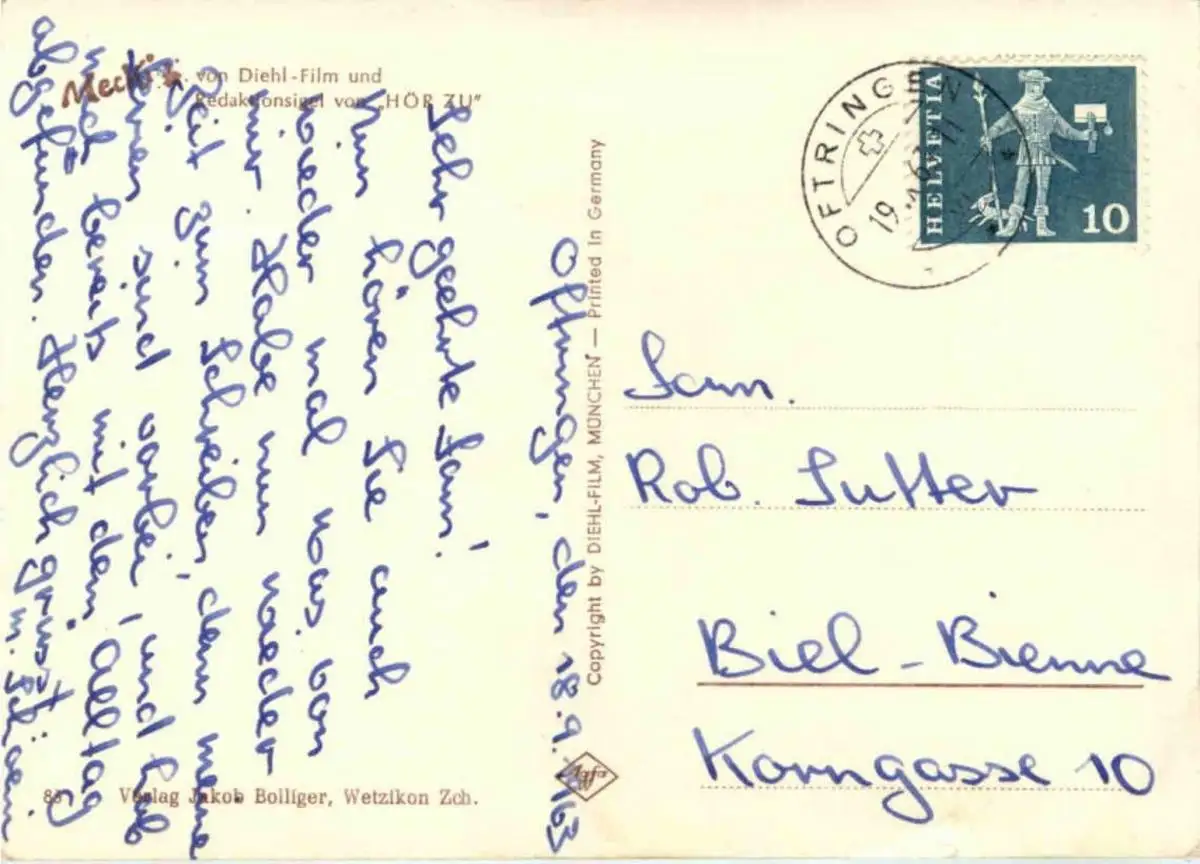 Mecki
von Diehl-Film und
Redaktionsigel von „HÖR ZU“
Oftringen, den 18.9.63
Sehr geehrte Fam!
Nun hören Sie auch
wieder mal was von
mir. Habe nun wieder
Zeit zum Schreiben, denn meine
sind vorbei, und hab
mich bereits mit dem Alltag
abgefunden. Herzlich grüsst
Copyright by DIEHL-FILM, MÜNCHEN — Printed in Germany
Agfa
Verlag Jakob Bolliger, Wetzikon Zch.
OFTRINGEN
HELVETIA
10
Fam.
Rob. Sutter
Biel - Bienne
Korngasse 10